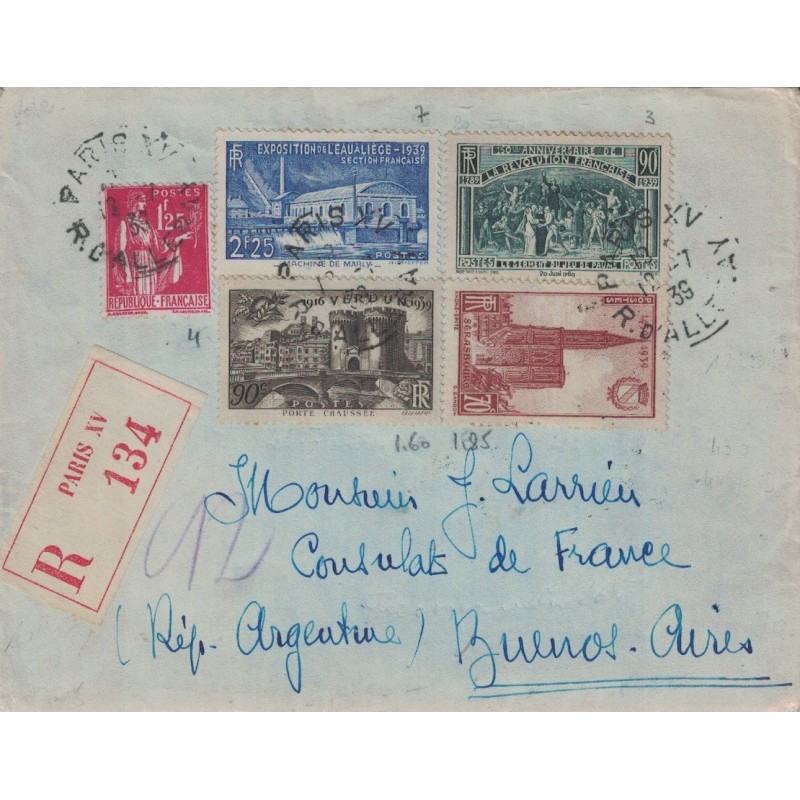 7
3
PARIS XV
R. D'ALL
39
POSTES
1F25
RÉPUBLIQUE-FRANÇAISE
4
RF
EXPOSITION DE L'EAU.LIÈGE-1939
SECTION FRANÇAISE
2F25
POSTES
MACHINE DE MARLY
PARIS XV
RF
150E ANNIVERSAIRE DE
LA RÉVOLUTION FRANÇAISE
90
1789
1939
POSTES
LE SERMENT DU JEU DE PAUME
POSTES
20 Juin 1789
PARIS XV
39
R. D'ALL
1916 VERDUN 1939
90c
POSTES
RF
PORTE CHAUSSÉE
RF
POSTES
1939
STRASBOURG
70
1.60
1.85
R
PARIS XV
134
Monsieur J. Larrieu
Consulat de France
(Rép. Argentine) Buenos-Aires